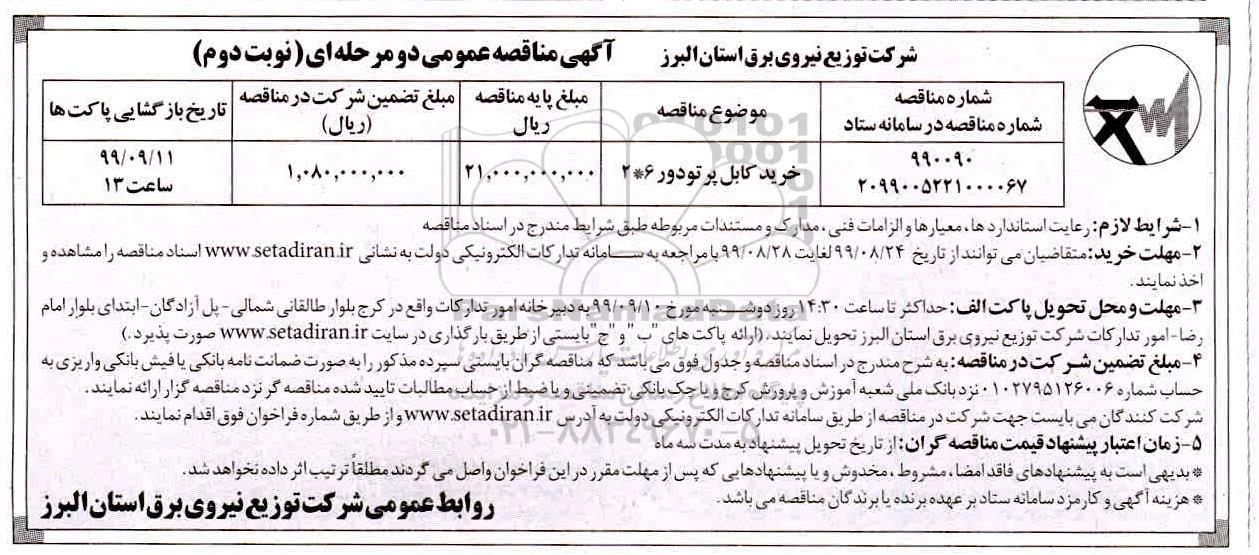 شرکت توزیع نیروی برق استان البرز آگهی مناقصه عمومی دو مرحله ای (نوبت دوم)
شماره مناقصه
شماره مناقصه در سامانه ستاد
موضوع مناقصه
مبلغ پایه مناقصه
ریال
مبلغ تضمین شرکت در مناقصه
(ریال)
تاریخ بازگشایی پاکت ها
۹۹۰۰۹۰
۲۰۹۹۰۰۵۲۲۱۰۰۰۰۶۷
خرید کابل پرتودور ۶*۲
۲۱,۰۰۰,۰۰۰,۰۰۰
۱,۰۸۰,۰۰۰,۰۰۰
۹۹/۰۹/۱۱
ساعت ۱۳
۱-شرایط لازم: رعایت استانداردها، معیارها و الزامات فنی، مدارک و مستندات مربوطه طبق شرایط مندرج در اسناد مناقصه
۲-مهلت خرید: متقاضیان می توانند از تاریخ ۹۹/۰۸/۲۴ لغایت ۹۹/۰۸/۲۸ با مراجعه به سامانه تدارکات الکترونیکی دولت به نشانی www.setadiran.ir اسناد مناقصه را مشاهده و
اخذ نمایند.
۳-مهلت و محل تحویل پاکت الف: حداکثر تا ساعت ۱۴:۳۰ روز دوشنبه مورخ ۹۹/۰۹/۱۰ به دبیرخانه امور تدارکات واقع در کرج بلوار طالقانی شمالی- پل آزادگان-ابتدای بلوار امام
رضا-امور تدارکات شرکت توزیع نیروی برق استان البرز تحویل نمایند. (ارائه پاکت های "ب" و "ج" بایستی از طریق بارگذاری در سایت www.setadiran.ir صورت پذیرد.)
۴-مبلغ تضمین شرکت در مناقصه: به شرح مندرج در اسناد مناقصه و جدول فوق می باشد که مناقصه گران بایستی سپرده مذکور را به صورت ضمانت نامه بانکی یا فیش بانکی واریزی به
حساب شماره ۰۱۰۲۷۹۵۱۲۶۰۰۶ نزد بانک ملی شعبه آموزش و پرورش کرج و یا چک بانکی تضمینی و یا ضبط از حساب مطالبات تایید شده مناقصه گر نزد مناقصه گزار ارائه نمایند.
شرکت کنندگان می بایست جهت شرکت در مناقصه از طریق سامانه تدارکات الکترونیکی دولت به آدرس www.setadiran.ir و از طریق شماره فراخوان فوق اقدام نمایند.
۵-زمان اعتبار پیشنهاد قیمت مناقصه گران: از تاریخ تحویل پیشنهاد به مدت سه ماه
*بدیهی است به پیشنهادهای فاقد امضا، مشروط، مخدوش و یا پیشنهادهایی که پس از مهلت مقرر در این فراخوان واصل می گردند مطلقاً ترتیب اثر داده نخواهد شد.
*هزینه آگهی و کارمزد سامانه ستاد بر عهده برنده یا برندگان مناقصه می باشد.
روابط عمومی شرکت توزیع نیروی برق استان البرز
ParsNamadData
۰۲۱-۸۸۳۴۹۶۷۰-۵